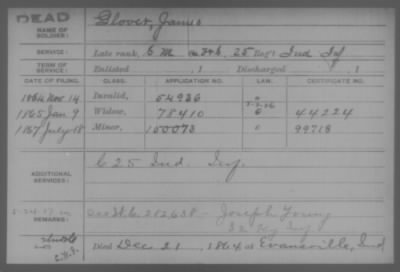 DEAD
NAME OF SOLDIER:
Glover, James
SERVICE:
Late rank, 25 Reg't Ind Inf
TERM OF SERVICE:
Enlisted , 1 Discharged , 1
DATE OF FILING. CLASS. APPLICATION NO. LAW. CERTIFICATE NO.
1864 Nov 14 Invalid, 54936
1865 Jan 9 Widow, 78410 44224
1867 July 18 Minor, 150073 99718
ADDITIONAL SERVICES:
C 25 Ind. Inf.
REMARKS:
212,638 - Joseph Young
32 Ky Inf
Died Dec 21, 1864 at Evansville, Ind